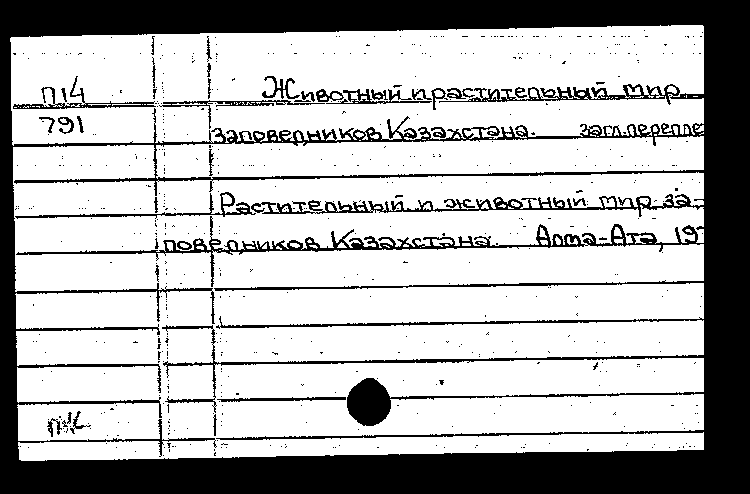 П14
791
Животный и растительный мир
заповедников Казахстана. загл.перепле
Растительный и животный мир за-
поведников Казахстана. Алма-Ата, 197